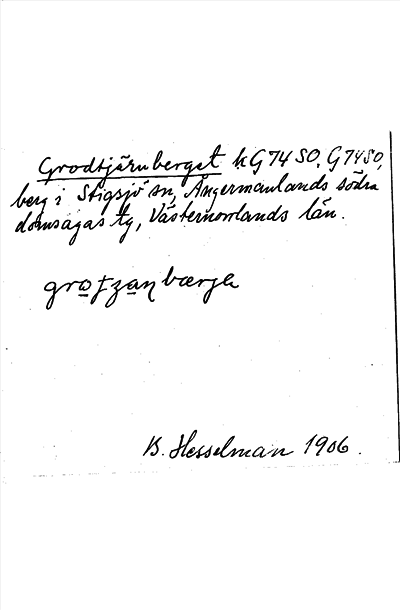 Grodtjärnberget kG74SO, G74SO,
berg i Stigsjö sn, Ångermanlands södra
domsagas tg, Västernorrlands län.
B. Hesselman 1906.